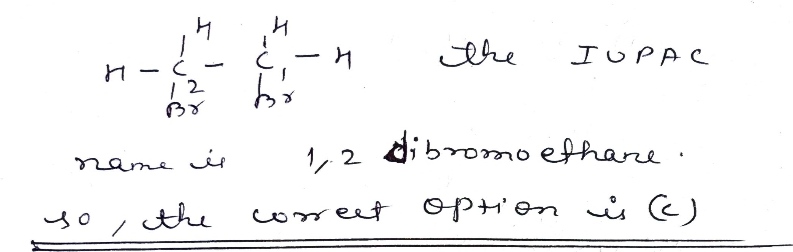 H H
H - C - C - H the IUPAC
2 1
Br Br
name is 1, 2 dibromo ethane .
so , the correct option is (c)